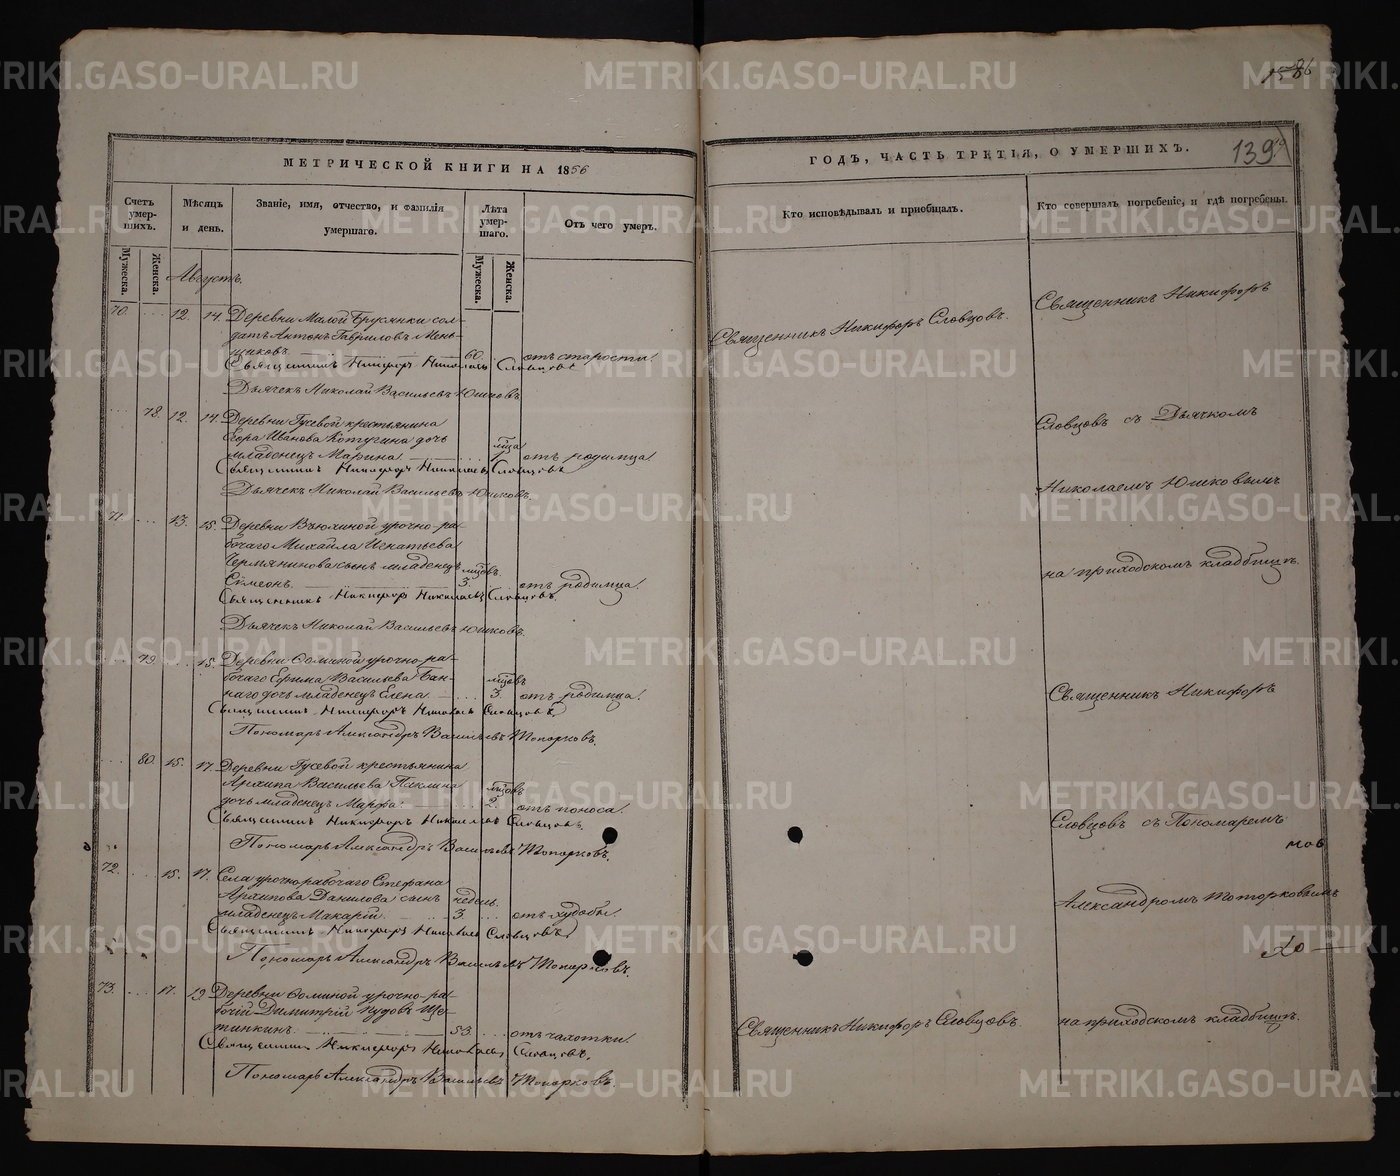 МЕТРИЧЕСКОЙ КНИГИ НА 1856
Счетъ умер-шихъ.
Мужеска.
Женска.
Мѣсяцъ и день.
Званіе, имя, отчество, и фамилія умершаго.
Лѣта умер-шаго.
Мужеска.
Женска.
Отъ чего умеръ.
Августъ.
70. 12. 14. Деревни Малой Брусянки сол-
датъ Антонъ Гавриловъ Мень-
щиковъ 60. отъ старости.
Священникъ Никифоръ Николаевъ Словцовъ
Дьячекъ Николай Васильевъ Юшковъ
78. 12. 14. Деревни Гусевой крестьянина
Егора Иванова Котугина дочь
младенецъ Марина отъ родимца.
Священникъ Никифоръ Николаевъ Словцовъ
Дьячекъ Николай Васильевъ Юшковъ.
71. 13. 15. Деревни Вьюхиной урочно-ра-
бочаго Михайла Игнатьева
Чермянинова сынъ младенецъ мѣсцовъ.
Сѵмеонъ. 3. отъ родимца.
Священникъ Никифоръ Николаевъ Словцовъ.
Дьячекъ Николай Васильевъ Юшковъ.
79. 15. Деревни Соминой урочно-ра-
бочаго Ефима Васильева Бан-
наго дочь младенецъ Елена 3. отъ родимца.
Священникъ Никифоръ Николаевъ Словцовъ
Пономарь Александръ Васильевъ Топорковъ.
80. 15. 17. Деревни Гусевой крестьянина
Архипа Васильева Паклина
дочь младенецъ Марфа. 2. отъ поноса.
Священникъ Никифоръ Николаевъ Словцовъ.
Пономарь Александръ Васильевъ Топорковъ.
72. 15. 17. Села урочнорабочаго Стефана
Архипова Данилова сынъ недель.
младенецъ Макарій. 3. отъ худобы.
Священникъ Никифоръ Николаевъ Словцовъ
Пономарь Александръ Васильевъ Топорковъ.
73. 17. 19 Деревни Соминой урочно-ра-
бочій Димитрій Иудовъ Ще-
тинкинъ 53. отъ чахотки.
Священникъ Никифоръ Николаевъ Словцовъ.
Пономарь Александръ Васильевъ Топорковъ.
ГОДЪ, ЧАСТЬ ТРЕТІЯ, О УМЕРШИХЪ.
139
Кто исповѣдывалъ и пріобщалъ.
Кто совершалъ погребеніе, и гдѣ погребены.
Священникъ Никифоръ Словцовъ.
Священникъ Никифоръ
Словцовъ съ Дьячкомъ
Николаемъ Юшковымъ
на приходскомъ кладбищѣ.
Священникъ Никифоръ
Словцовъ съ Пономаремъ
Александромъ Топорковымъ
Священникъ Никифоръ Словцовъ
на приходскомъ кладбищѣ.
METRIKI.GASO-URAL.RU